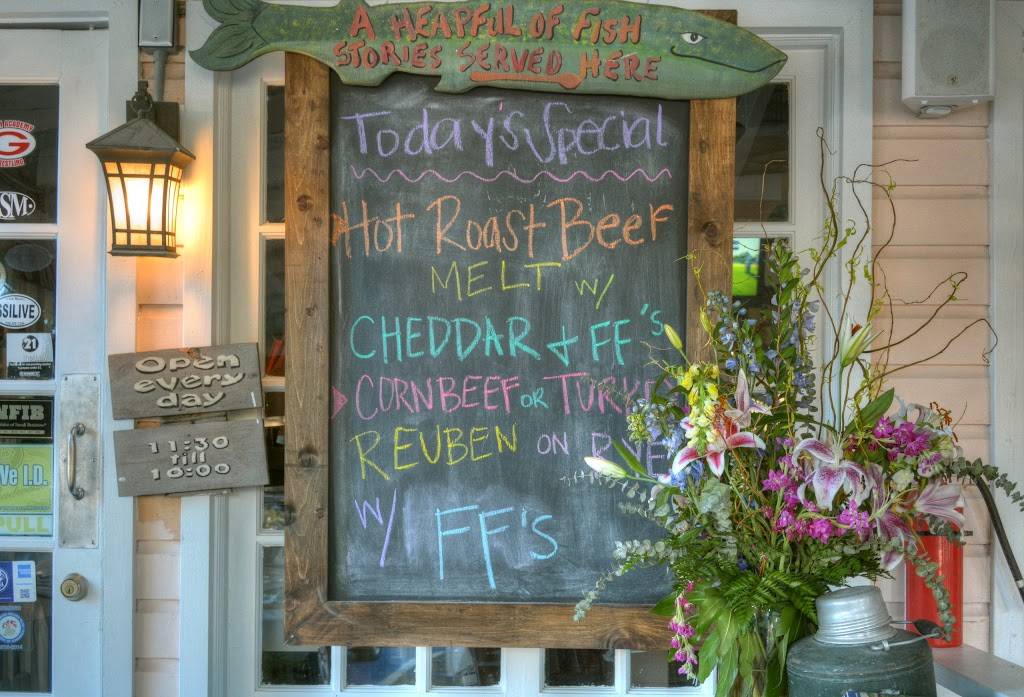 A HEAPFUL OF FISH
STORIES SERVED HERE
Today's Special
Hot Roast Beef
MELT w/
CHEDDAR + FF's
CORNBEEF OR TURKEY
REUBEN ON RYE
w/ FF'S
Open
every
day
11:30
till
10:00
G
SM
SSILIVE
21
NFIB
We I.D.
PULL